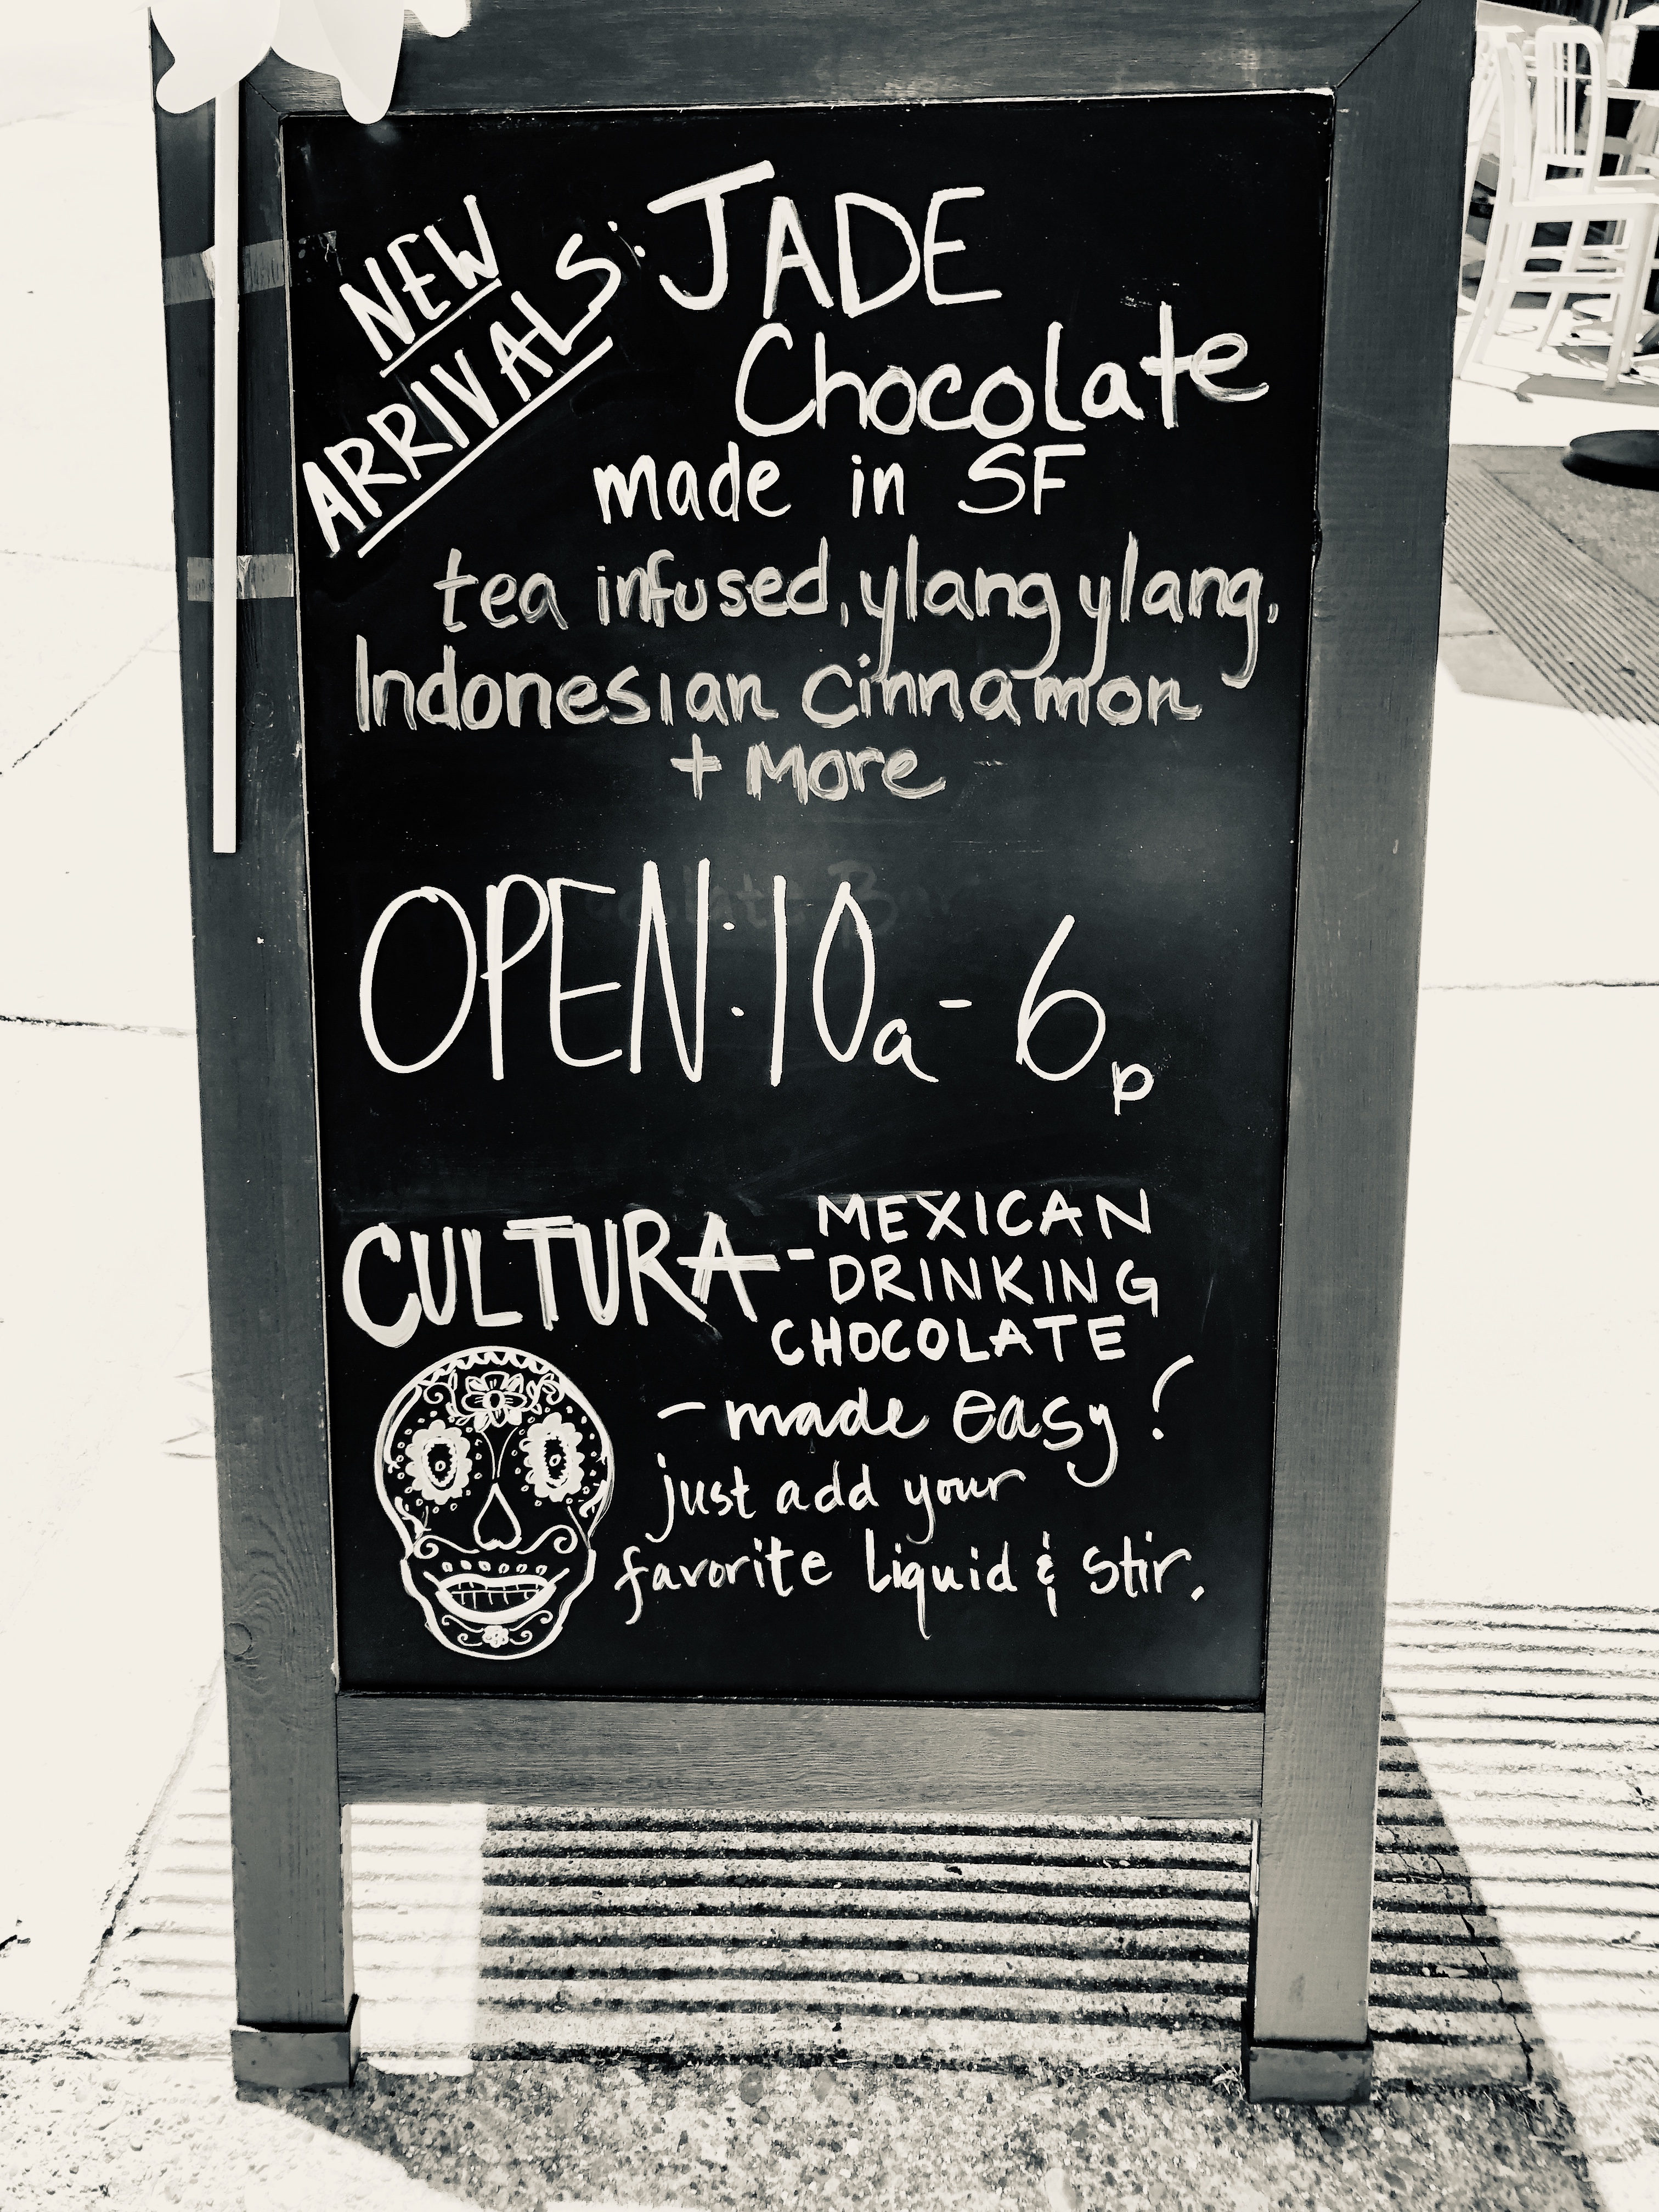 NEW
ARRIVALS: JADE
Chocolate
made in SF
tea infused, ylang ylang,
Indonesian Cinnamon
+ More
OPEN: 10a - 6p
CULTURA - MEXICAN
DRINKING
CHOCOLATE
- made easy!
just add your
favorite liquid & stir.